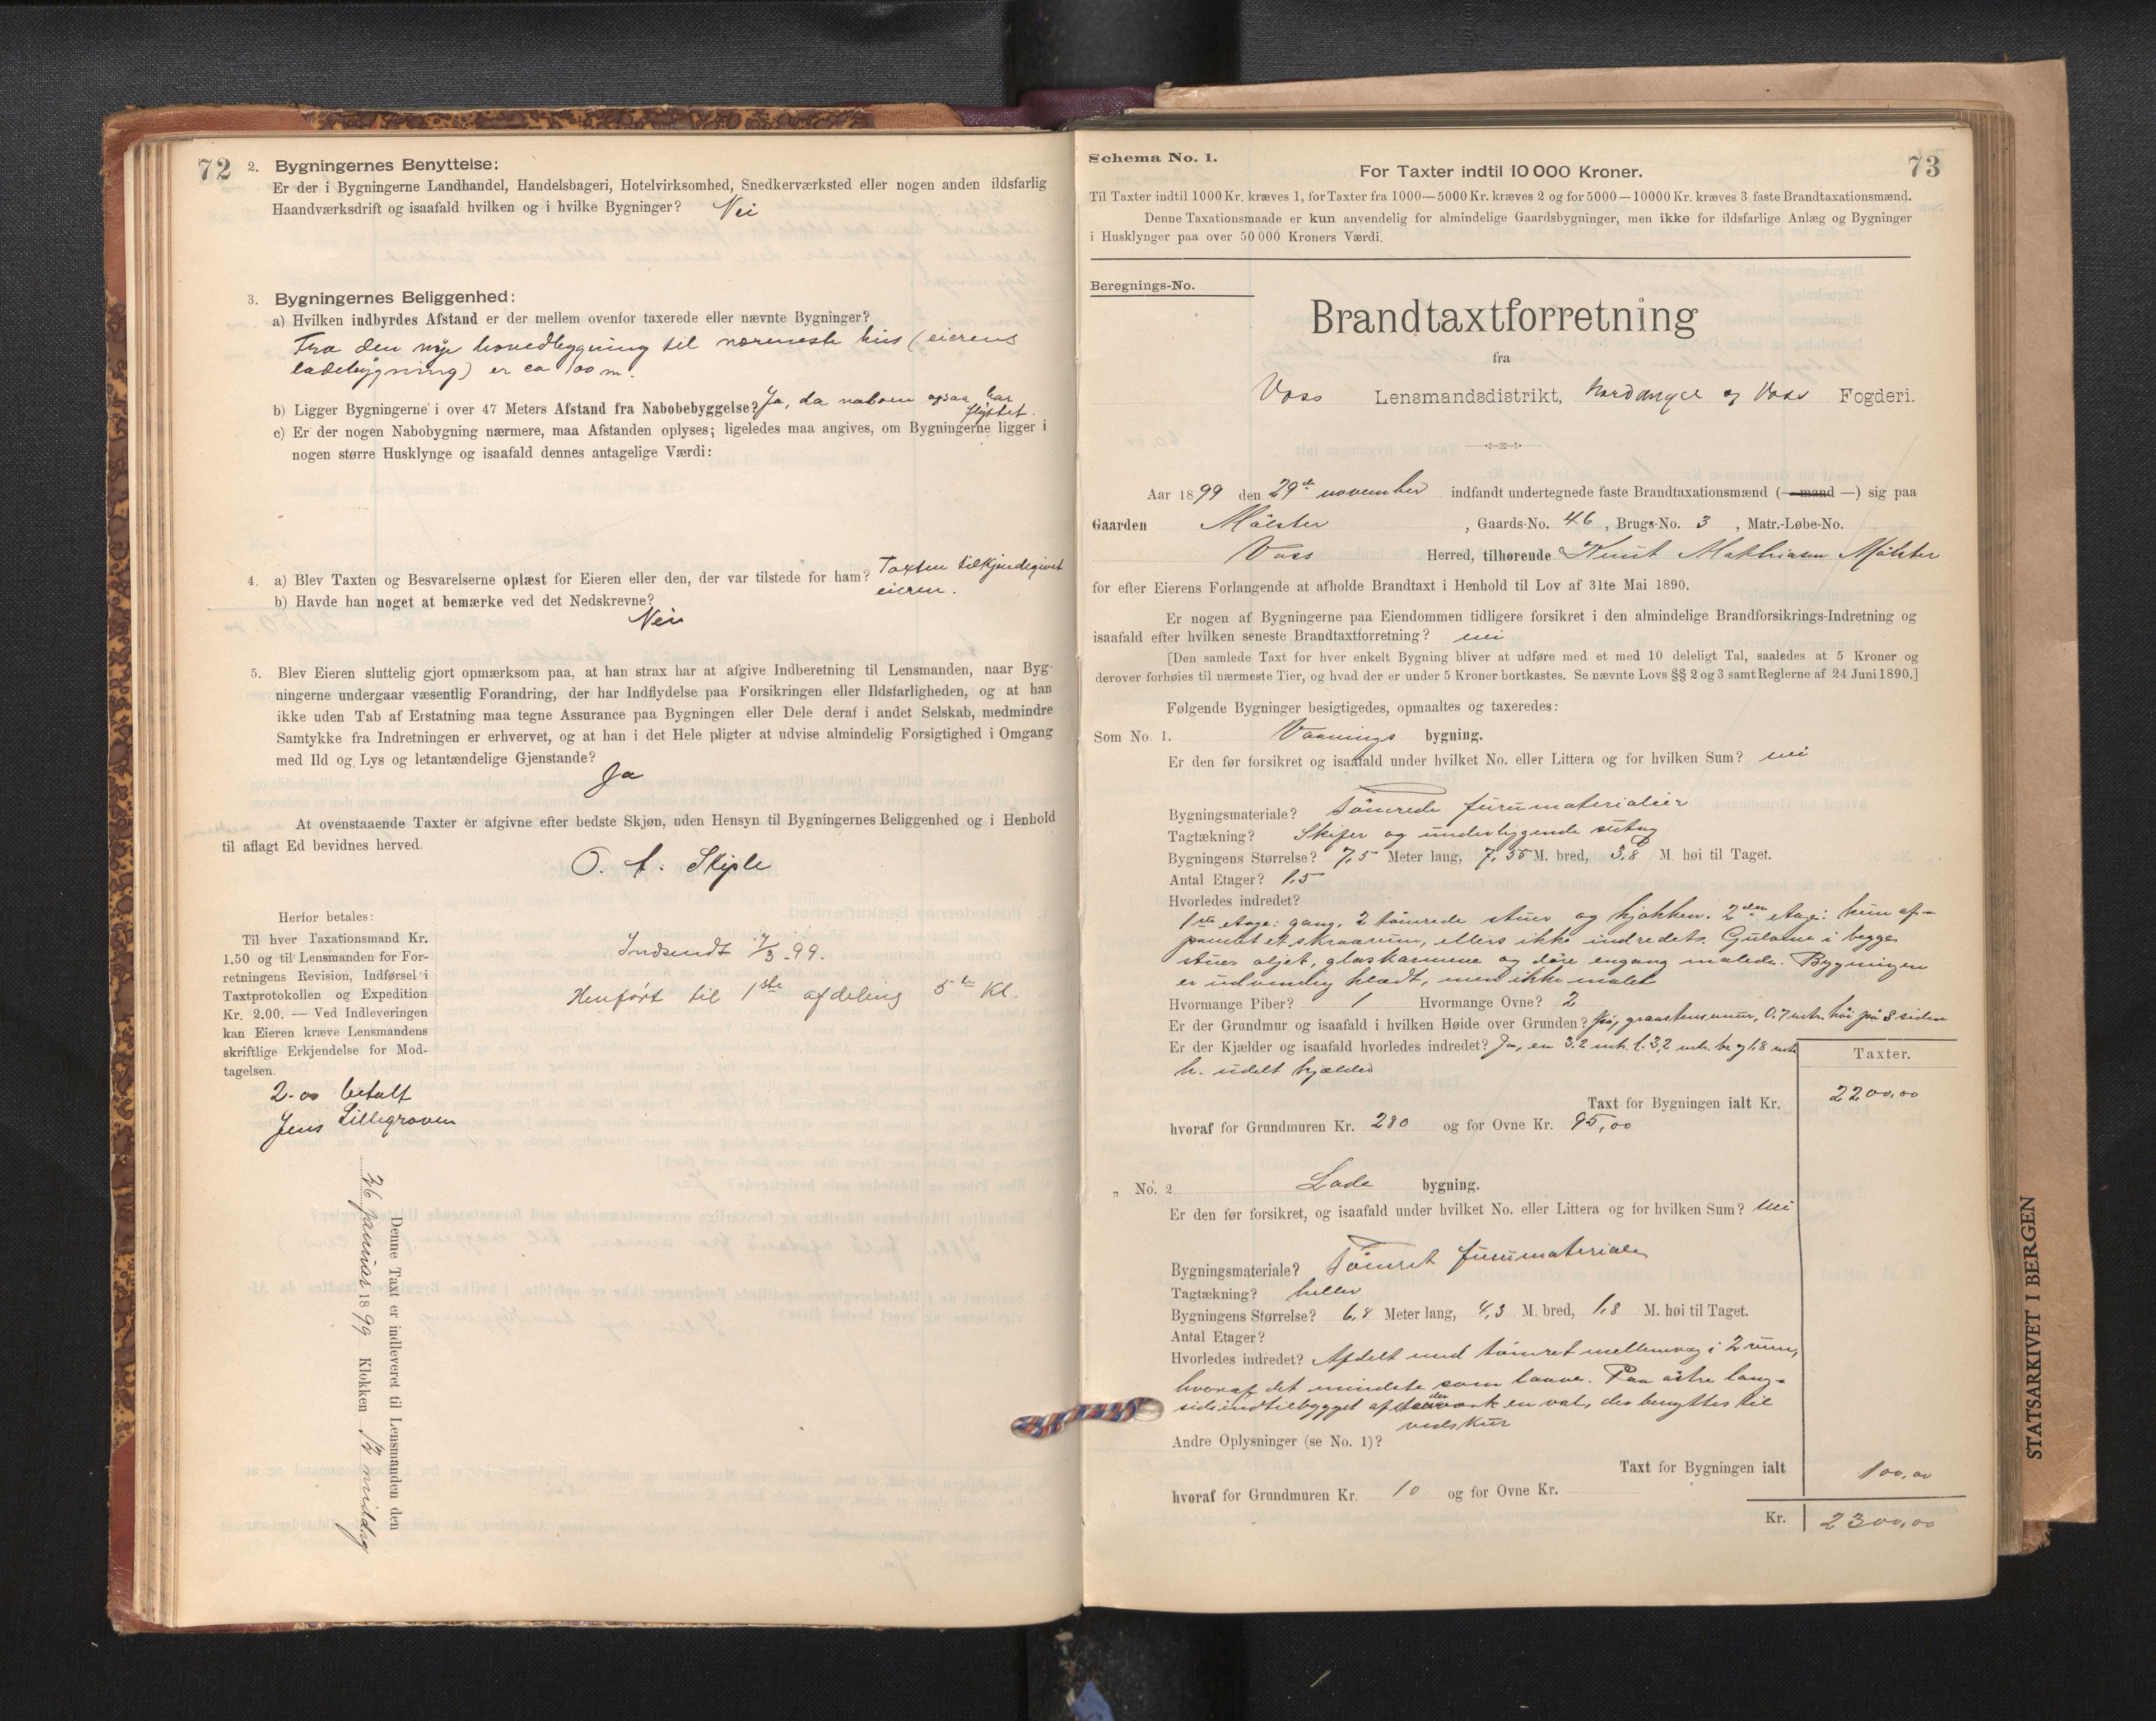 72
2. Bygningernes Benyttelse:
Er der i Bygningerne Landhandel, Handelsbageri, Hotelvirksomhed, Snedkerværksted eller nogen anden ildsfarlig
Haandværksdrift og isaafald hvilken og i hvilke Bygninger? Nei
3. Bygningernes Beliggenhed:
a) Hvilken indbyrdes Afstand er der mellem ovenfor taxerede eller nævnte Bygninger?
Fra den nye hovedbygning til nærmeste hus (eierens
ladebygning) er ca 100 m.
b) Ligger Bygningerne i over 47 Meters Afstand fra Nabobebyggelse? Ja, da naboen ogsaa har
flyttet.
c) Er der nogen Nabobygning nærmere, maa Afstanden oplyses; ligeledes maa angives, om Bygningerne ligger i
nogen større Husklynge og isaafald dennes antagelige Værdi:
4. a) Blev Taxten og Besvarelserne oplæst for Eieren eller den, der var tilstede for ham? Taxten tilkjendegivet
eieren.
b) Havde han noget at bemærke ved det Nedskrevne?
Nei
5. Blev Eieren sluttelig gjort opmærksom paa, at han strax har at afgive Indberetning til Lensmanden, naar Byg-
ningerne undergaar væsentlig Forandring, der har Indflydelse paa Forsikringen eller Ildsfarligheden, og at han
ikke uden Tab af Erstatning maa tegne Assurance paa Bygningen eller Dele deraf i andet Selskab, medmindre
Samtykke fra Indretningen er erhvervet, og at han i det Hele pligter at udvise almindelig Forsigtighed i Omgang
med Ild og Lys og letantændelige Gjenstande?
Ja
At ovenstaaende Taxter er afgivne efter bedste Skjøn, uden Hensyn til Bygningernes Beliggenhed og i Henhold
til aflagt Ed bevidnes herved.
O. A. Skiple
Herfor betales:
Til hver Taxationsmand Kr.
1.50 og til Lensmanden for For-
retningens Revision, Indførsel i
Taxtprotokollen og Expedition
Kr. 2.00. — Ved Indleveringen
kan Eieren kræve Lensmandens
skriftlige Erkjendelse for Mod-
tagelsen.
2-00 betalt
Jens Lillegraven
Indsendt 7/3-99.
Henført til 1ste afdeling 5te Kl.
Denne Taxt er indleveret til Lensmanden den
26 januar 1899 Klokken 12 middag
73
Schema No. 1.
For Taxter indtil 10 000 Kroner.
Til Taxter indtil 1000 Kr. kræves 1, for Taxter fra 1000—5000 Kr. kræves 2 og for 5000—10000 Kr. kræves 3 faste Brandtaxationsmænd.
Denne Taxationsmaade er kun anvendelig for almindelige Gaardsbygninger, men ikke for ildsfarlige Anlæg og Bygninger
i Husklynger paa over 50 000 Kroners Værdi.
Beregnings-No.
Brandtaxtforretning
fra
Voss Lensmandsdistrikt, Hardanger og Voss Fogderi.
Aar 1899 den 29de november indfandt undertegnede faste Brandtaxationsmænd (—mand—) sig paa
Gaarden Mølster, Gaards-No. 46, Brugs-No. 3, Matr.-Løbe-No.
Voss Herred, tilhørende Knut Mathiasen Mølster
for efter Eierens Forlangende at afholde Brandtaxt i Henhold til Lov af 31te Mai 1890.
Er nogen af Bygningerne paa Eiendommen tidligere forsikret i den almindelige Brandforsikrings-Indretning og
isaafald efter hvilken seneste Brandtaxtforretning? nei
[Den samlede Taxt for hver enkelt Bygning bliver at udføre med et med 10 deleligt Tal, saaledes at 5 Kroner og
derover forhøies til nærmeste Tier, og hvad der er under 5 Kroner bortkastes. Se nævnte Lovs §§ 2 og 3 samt Reglerne af 24 Juni 1890.]
Følgende Bygninger besigtigedes, opmaaltes og taxeredes:
Som No. 1. Vaanings bygning.
Er den før forsikret og isaafald under hvilket No. eller Littera og for hvilken Sum? nei
Bygningsmateriale? Tømrede furumaterialier
Tagtækning? Skifer og underliggende sutag
Bygningens Størrelse? 7,5 Meter lang, 7,55 M. bred, 3,8 M. høi til Taget.
Antal Etager? 1,5
Hvorledes indredet?
1ste etage: gang, 2 tømrede stuer og kjøkken. 2den etage: kun af-
panelet et skraarum, ellers ikke indredet. Gulvene i begge
stuer oljet, glaskarmene og døre engang malede. Bygningen
er udvendig klædt, men ikke malet
Hvormange Piber? 1 Hvormange Ovne? 2
Er der Grundmur og isaafald i hvilken Høide over Grunden? Ja, graastensmur, 0.7 mtr. høi på 3 sider
Er der Kjælder og isaafald hvorledes indredet? Ja, en 3.2 mtr. l. 3,2 mtr. br. og 1,8 mtr.
h. udelt kjælder
Taxter.
Taxt for Bygningen ialt Kr. 2200,00
hvoraf for Grundmuren Kr. 280 og for Ovne Kr. 95,00
„ No. 2 Lade bygning.
Er den før forsikret, og isaafald under hvilket No. eller Littera og for hvilken Sum? nei
Bygningsmateriale? Tømret furumateriale
Tagtækning? heller
Bygningens Størrelse? 6,8 Meter lang, 4,3 M. bred, 1,8 M. høi til Taget.
Antal Etager?
Hvorledes indredet? Afdelt med tømret mellemvæg i 2 rum,
hvoraf det mindste som laave. Paa østre lang-
side indtilbygget af en val, der benyttes til
vedskur
Andre Oplysninger (se No. 1)?
Taxt for Bygningen ialt 100,00
hvoraf for Grundmuren Kr. 10 og for Ovne Kr.
Kr. 2300,00
STATSARKIVET I BERGEN